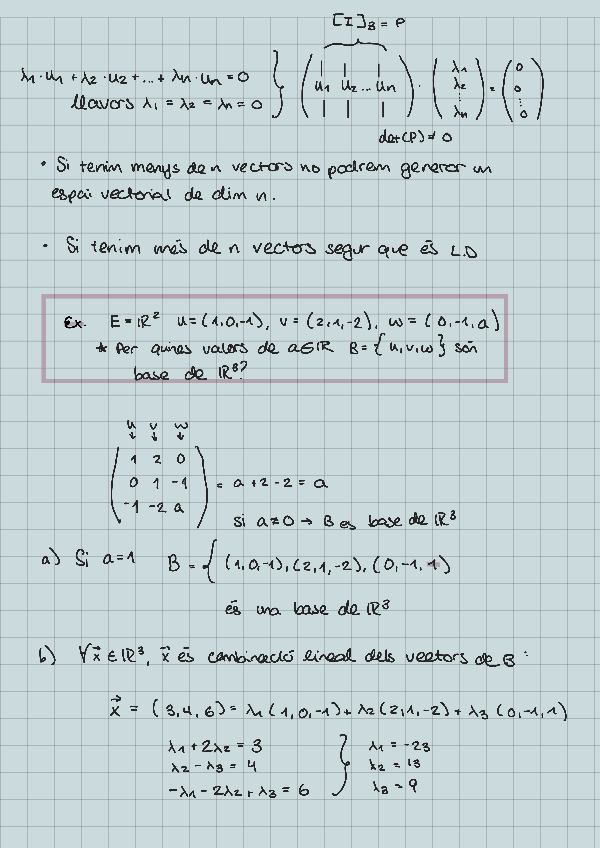 [I]_B = P
λ1·u1 + λ2·u2 + ... + λn·un = 0
llavors λ1 = λ2 = λn = 0
( u1 u2 ... un ) · ( λ1 λ2 ⋮ λn ) = ( 0 0 ⋮ 0 )
det(P) ≠ 0
• Si tenim menys de n vectors no podrem generar un
espai vectorial de dim n.
• Si tenim més de n vectors segur que és L.D
Ex. E = ℝ² u = (1,0,-1), v = (2,1,-2), w = (0,-1,a)
* Per quines valors de a∈ℝ B = {u,v,w} són
base de ℝ³?
u v w
↓ ↓ ↓
1 2 0
0 1 -1 = a + 2 - 2 = a
-1 -2 a
si a≠0 → B es base de ℝ³
a) Si a=1 B = { (1,0,-1), (2,1,-2), (0,-1,1)
és una base de ℝ³
b) ∀x⃗ ∈ ℝ³, x⃗ és combinació lineal dels vectors de B:
x⃗ = (3,4,6) = λ1(1,0,-1) + λ2(2,1,-2) + λ3(0,-1,1)
λ1 + 2λ2 = 3 λ1 = -23
λ2 - λ3 = 4 } λ2 = 13
-λ1 - 2λ2 + λ3 = 6 λ3 = 9